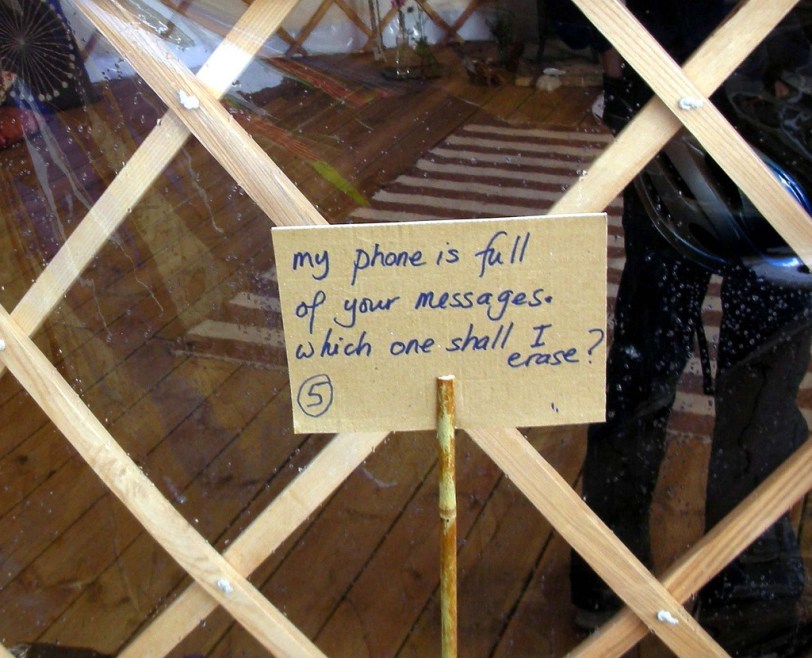 my phone is full
of your messages.
which one shall I
erase?
5